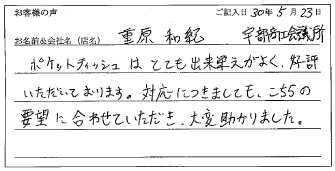 お客様の声 ご記入日 30年5月23日
お名前&会社名(店名) 重原 和紀 宇部商工会議所
ポケットティッシュは とても出来栄えがよく、好評
いただいております。対応につきましても、こちらの
要望に合わせていただき、大変助かりました。